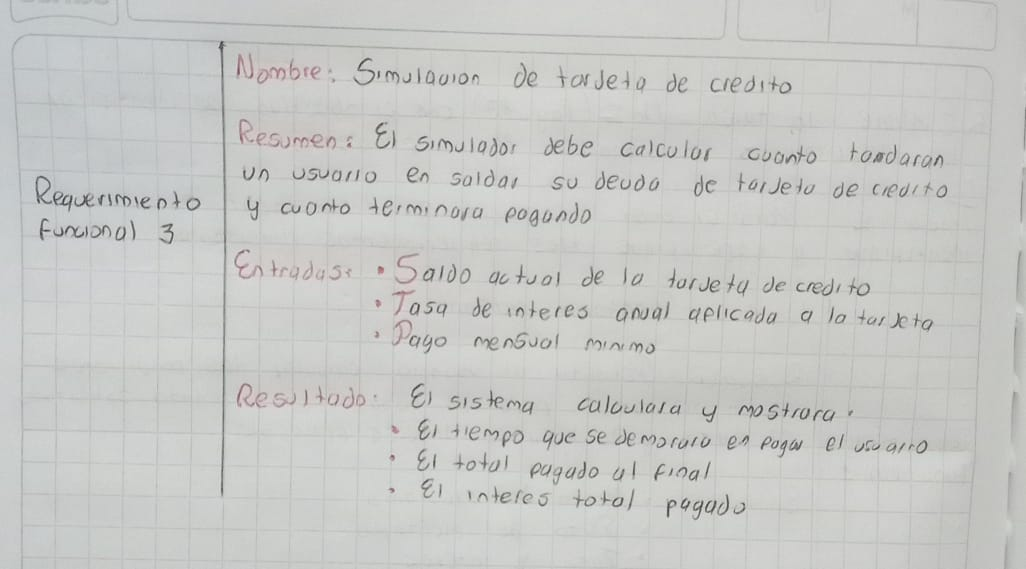 Nombre: Simulacion de tarjeta de credito
Resumen: El simulador debe calcular cuanto tardaran
un usuario en saldar su deuda de tarjeta de credito
y cuanto terminara pagando
Requerimiento
funcional 3
Entradas: • Saldo actual de la tarjeta de credito
• Tasa de interes anual aplicada a la tarjeta
• Pago mensual minimo
Resultado: El sistema calculara y mostrara:
• El tiempo que se demorara en pagar el usuario
• El total pagado al final
• El interes total pagado